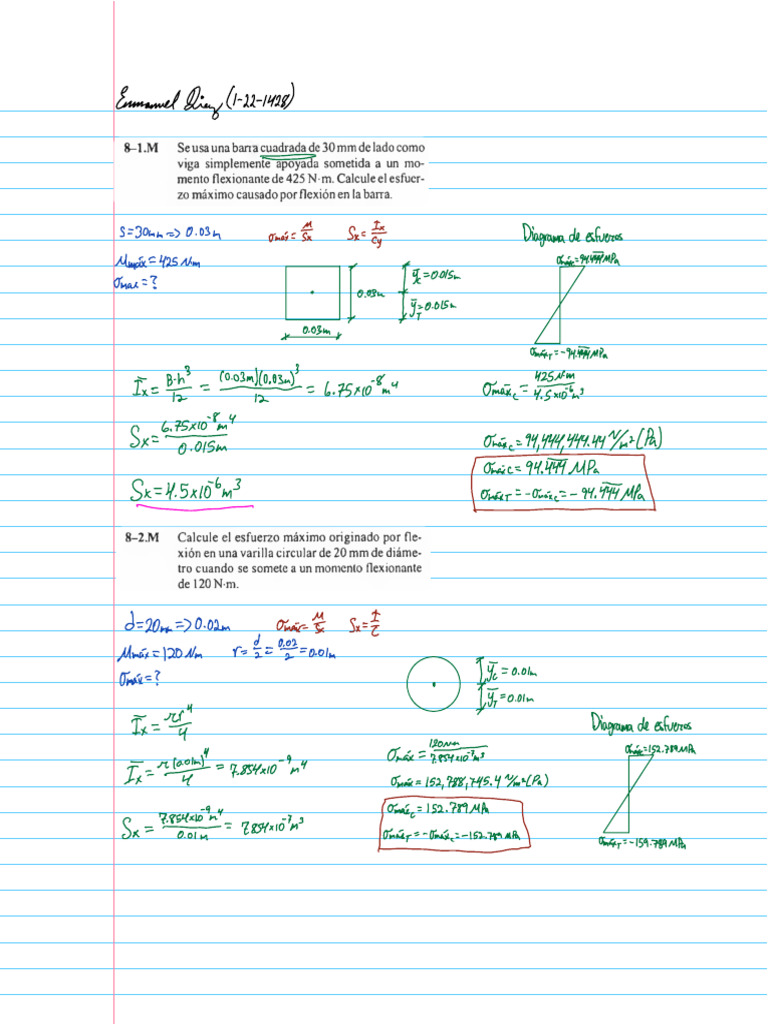 Emmanuel Diaz (1-22-1428)
8–1.M Se usa una barra cuadrada de 30 mm de lado como
viga simplemente apoyada sometida a un mo-
mento flexionante de 425 N·m. Calcule el esfuer-
zo máximo causado por flexión en la barra.
S=30mm=>0.03m
σmáx=M/Sx Sx=Ix/Cy
Diagrama de esfueros
Mmáx=425 Nm
σmax=?
ȳc=0.015m
ȳT=0.015m
0.03m
0.03m
σmáxc=94.444MPa
σmáxT=-94.444MPa
Īx=B·h³/12=(0.03m)(0.03m)³/12=6.75x10⁻⁸m⁴
σmáxc=425 Nm/4.5x10⁻⁶m³
Sx=6.75x10⁻⁸m⁴/0.015m
σmáxc=94,444,444.44 N/m²(Pa)
Sx=4.5x10⁻⁶m³
σmáxc=94.444 MPa
σmáxT=-σmáxc=-94.444 MPa
8–2.M Calcule el esfuerzo máximo originado por fle-
xión en una varilla circular de 20 mm de diáme-
tro cuando se somete a un momento flexionante
de 120 N·m.
d=20mm=>0.02m
σmáx=M/Sx Sx=I/C
Mmáx=120 Nm r=d/2=0.02/2=0.01m
σmáx=?
ȳc=0.01m
ȳT=0.01m
Īx=πr⁴/4
Diagrama de esfueros
σmáxc=152.789MPa
σmáxT=-159.789MPa
Īx=π(0.01m)⁴/4=7.854x10⁻⁹m⁴
σmáx=120Nm/7.854x10⁻⁷m³
σmáx=152,788,745.4 N/m²(Pa)
Sx=7.854x10⁻⁹m⁴/0.01m=7.854x10⁻⁷m³
σmáxc=152.789MPa
σmáxT=-σmáxc=-152.789MPa